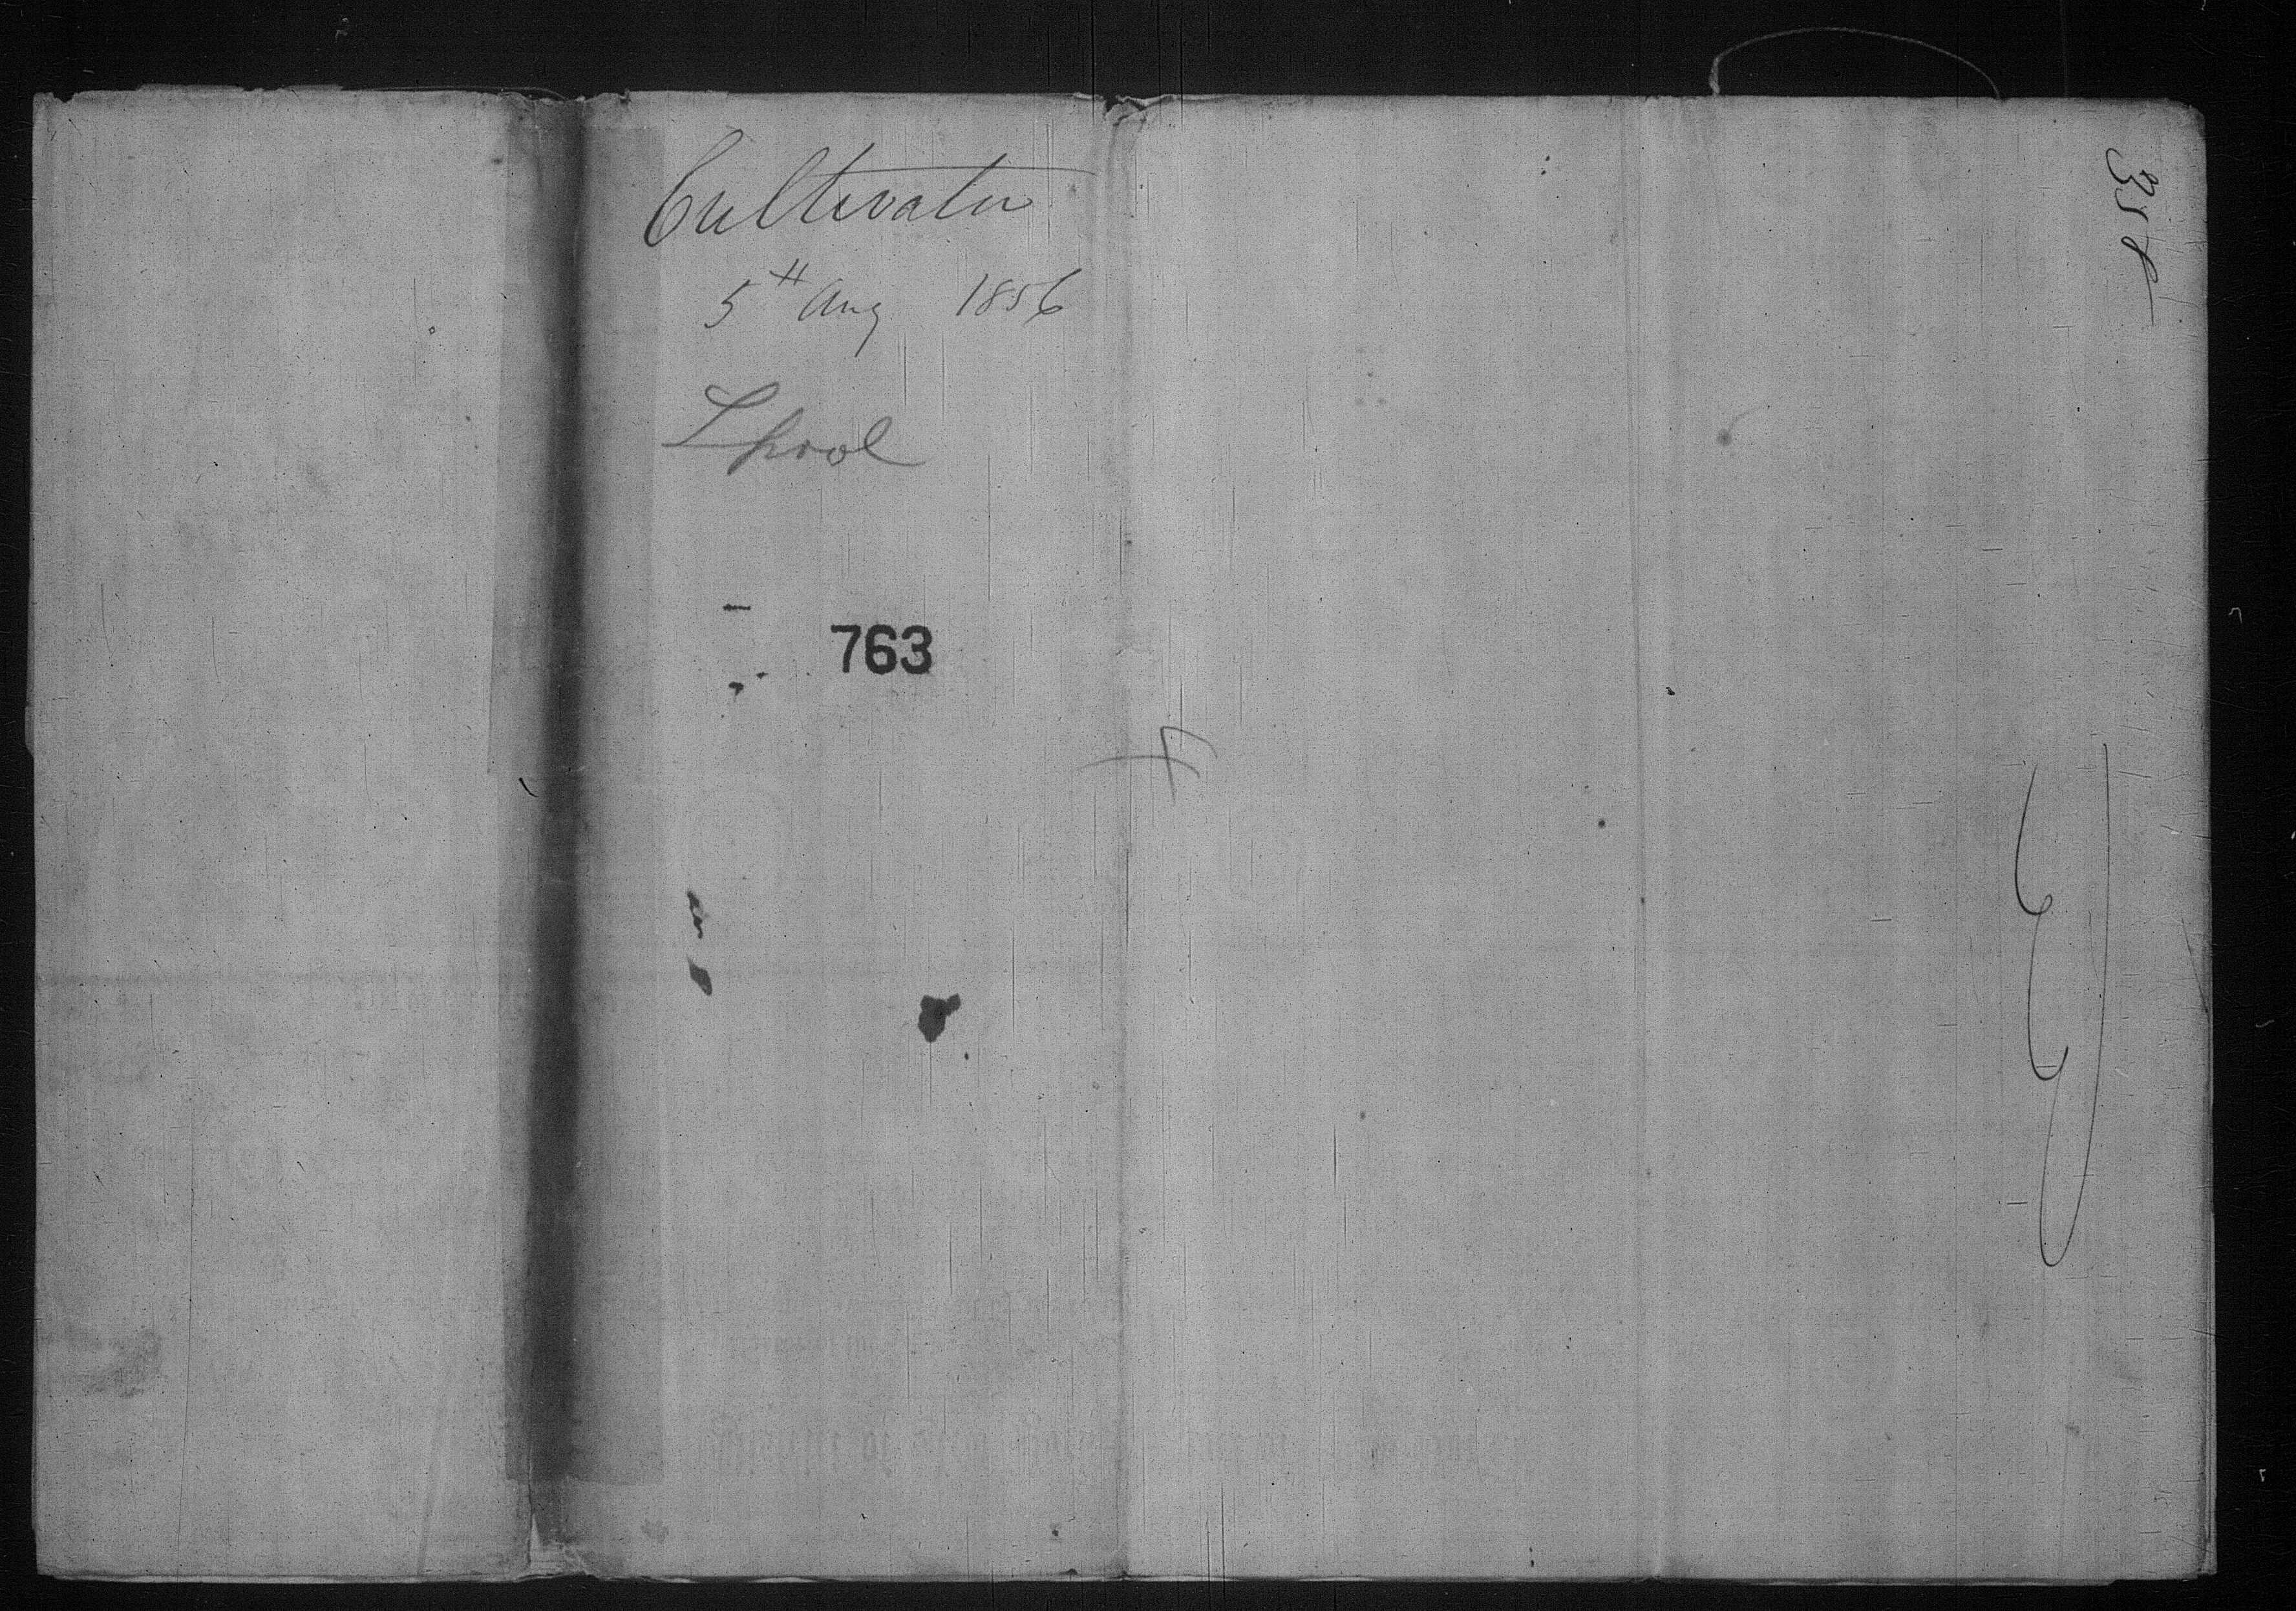 Cultivator
5th Aug 1856
Lpool
763
358